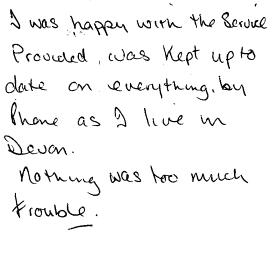 I was happy with the Service
Provided, was Kept up to
date on everything, by
Phone as I live in
Devon.
Nothing was too much
trouble.